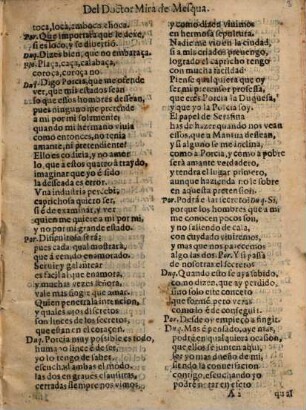 Del Doctor Mira de Mesqua.
toca, loca, emboca choca.
Por. Que importarà que le dexe,
si es loco, y se diuertiò.
Duq. Dizes bien, que no embaraça.
Plaça, caça, calabaça,
coroça, coroço no.
Duq. Digo Porcia, que me ofende
ver, que mis estados sean
lo que estos hombres dessean,
pues ninguno me pretende
a mi por mi solamente;
quando mi hermano viuia
como entonces, no tenia
amante, ni pretendiente!
Ello es codicia, y no amor
lo, que a essos quatro ha traydo,
imaginar que yo e sido
la desseada es error.
Y na industria percebi,
caprichosa quiero ser,
è de examinar, y ver
quien me quiere a mi por mi,
y no por mi grande estado.
Por. Dificultosa serà;
pues cada qual mostrarà,
que à cenido enamorado.
Seruir y galantear
es facil a vn enamora
y muchas vezes señora,
vale mas fingir que amar.
Quien penetra la intencion,
y quales ojos discretos
son linces de los secretos,
que estan en el coraçon.
Duq. Porcia muy possible es todo,
humano lince è de ser,
yo lo tengo de saber
escucha las ambas el modo.
las dos en graues clausuras,
cerradas siempre nos vimos
y como dizen viuimos
en hermosa sepultura.
Nadie me viò en la ciudad,
si a mis criados preuengo,
logrado el capricho tengo
con mucha facilidad
que eres Porcia la Duquesa,
y que yo la Porcia soy.
El papel de Serafina
has de hazer quando nos vean
essos, que a Mantua dessean,
y si alguno se me inclina,
como a Porcia, y como a pobre
serà amante verdadero,
y tendra el lugar primero,
aunque hazienda no le sobre
en aquesta pretension.
Por. Podrà ser secreto? Duq. Si,
por que los hombres que a mi
me conocen pocos son,
y no saliendo de casa,
con cuydado recatemos,
y mas que nos parecemos
algo las dos. Por. Y si passa
de nosotras el secreto?
Duq. Quando esto se aya sabido,
como dizen, que ay perdido,
sino solo este conceto
que formè pero veràs
como lo è de conseguir.
Por. Desde oy empieço a fingir.
Duq. Mas è pensado, oye mas,
podrè en qualquiera ocasion,
que ellos se junten aqui,
ser yo mas dueño de mi,
oyendo la conuersacion:
escuchando yo
podrè notar en secreto
A 2 qual